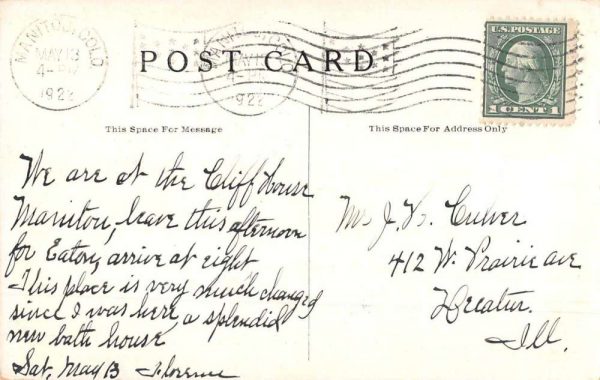 MANITOU, COLO.
MAY 13
4-
1922
POST CARD
U.S. POSTAGE
1 CENT 1
This Space For Message
This Space For Address Only
We are at the Cliff House
Manitou, leave this afternoon
for Eaton, arrive at eight
This place is very much changed
since I was here, a splendid
new bath house
Sat, May 13 Florence
J. Culver
412 W. Prairie ave
Decatur.
Ill.